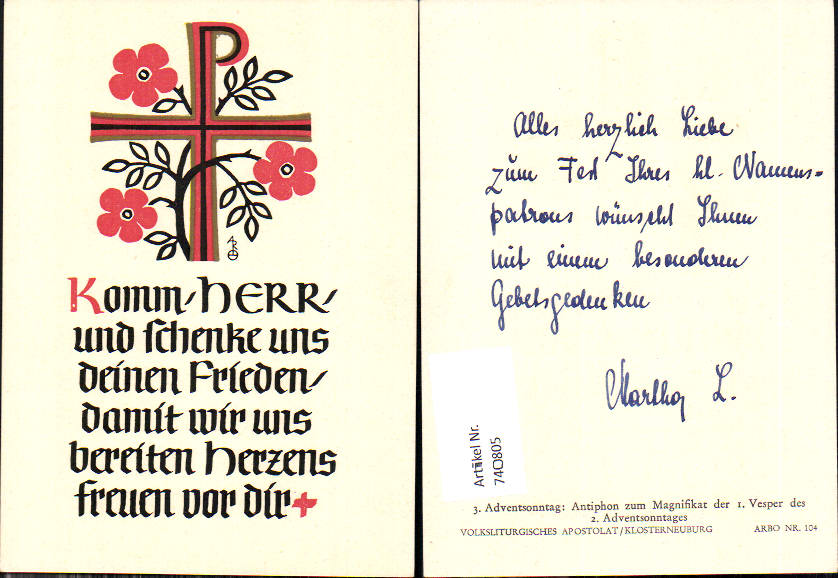 Komm/HERR/
und schenke uns
deinen Frieden/
damit wir uns
bereiten Herzens
freuen vor dir+
Alles herzlich Liebe
zum Fest Ihres hl. Namens-
patrons wünscht Ihnen
mit einem besonderen
Gebetsgedenken
Martha L.
Artikel Nr.
740805
3. Adventsonntag: Antiphon zum Magnifikat der 1. Vesper des
2. Adventsonntages
VOLKSLITURGISCHES APOSTOLAT/KLOSTERNEUBURG ARBO NR. 104